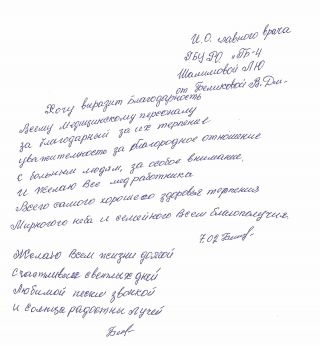 И.О. главного врача
ГБУ РО "ПБ"
Шалимовой Л Ю
от Беликовой В.
Хочу выразит благодарность
Всему медицинскому персоналу
за благодарный за их терпение
уважительность за благородное отношение
к больным людям, за особое внимание,
и желаю Все мед работника
Всего самого хорошего здоровья терпения
Мирного неба и семейного Всем благополучия.
7.02
Желаю Всем жизни долгой
Счастливых светлых дней
Любимой песни звонкой
и солнца радостны лучей